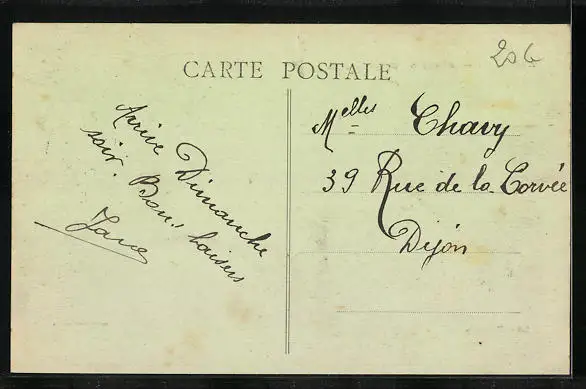 CARTE POSTALE
206
Arrive Dimanche
soir. Bons baisers
Melles Chavy
39 Rue de la Corvée
Dijon